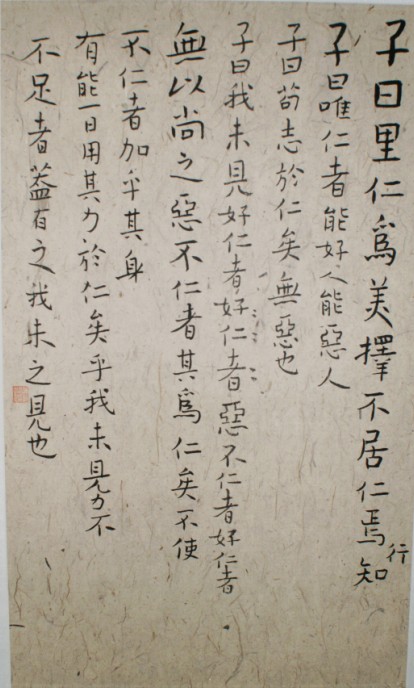 子曰里仁爲美擇不居仁焉行知
子曰唯仁者能好人能惡人
子曰苟志於仁矣無惡也
子曰我未見好仁者好仁者惡不仁者好仁者
無以尚之惡不仁者其爲仁矣不使
不仁者加乎其身
有能一日用其力於仁矣乎我未見力不
不足者蓋有之我未之見也